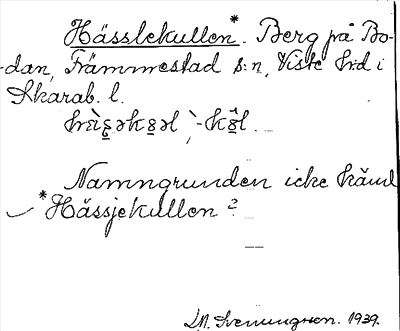 Hässlekullen*. Berg på Bo-
-dan, Främmestad s:n, Viste h:d i
Skarab. l.
Namngrunden icke känd
*Hässjekullen?
Svenungsson. 1939.